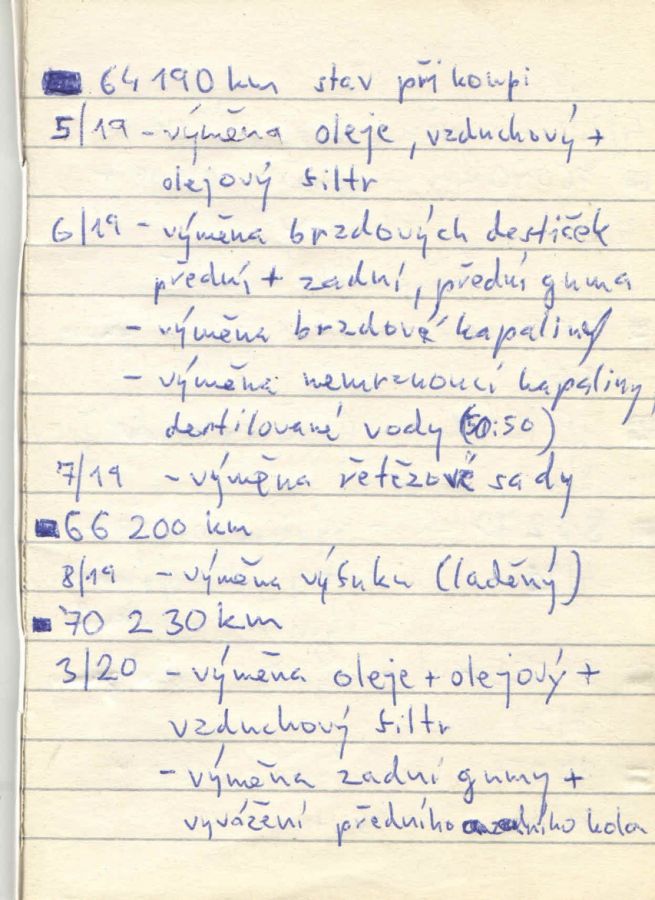 64 190 km stav při koupi
5/19 - výměna oleje, vzduchový +
olejový filtr
6/19 - výměna brzdových destiček
přední + zadní, přední guma
- výměna brzdové kapaliny
- výměna nemrznoucí kapaliny,
destilované vody (50:50)
7/19 - výměna řetězové sady
66 200 km
8/19 - výměna výfuku (laděný)
70 230 km
3/20 - výměna oleje + olejový +
vzduchový filtr
- výměna zadní gumy +
vyvážení předního a zadního kola